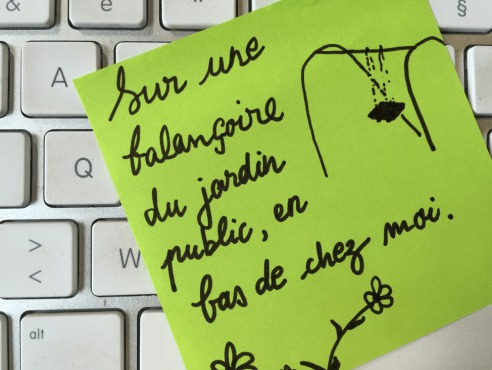 é
§
A
Q
>
<
W
alt
Sur une
balançoire
du jardin
public, en
bas de chez moi.